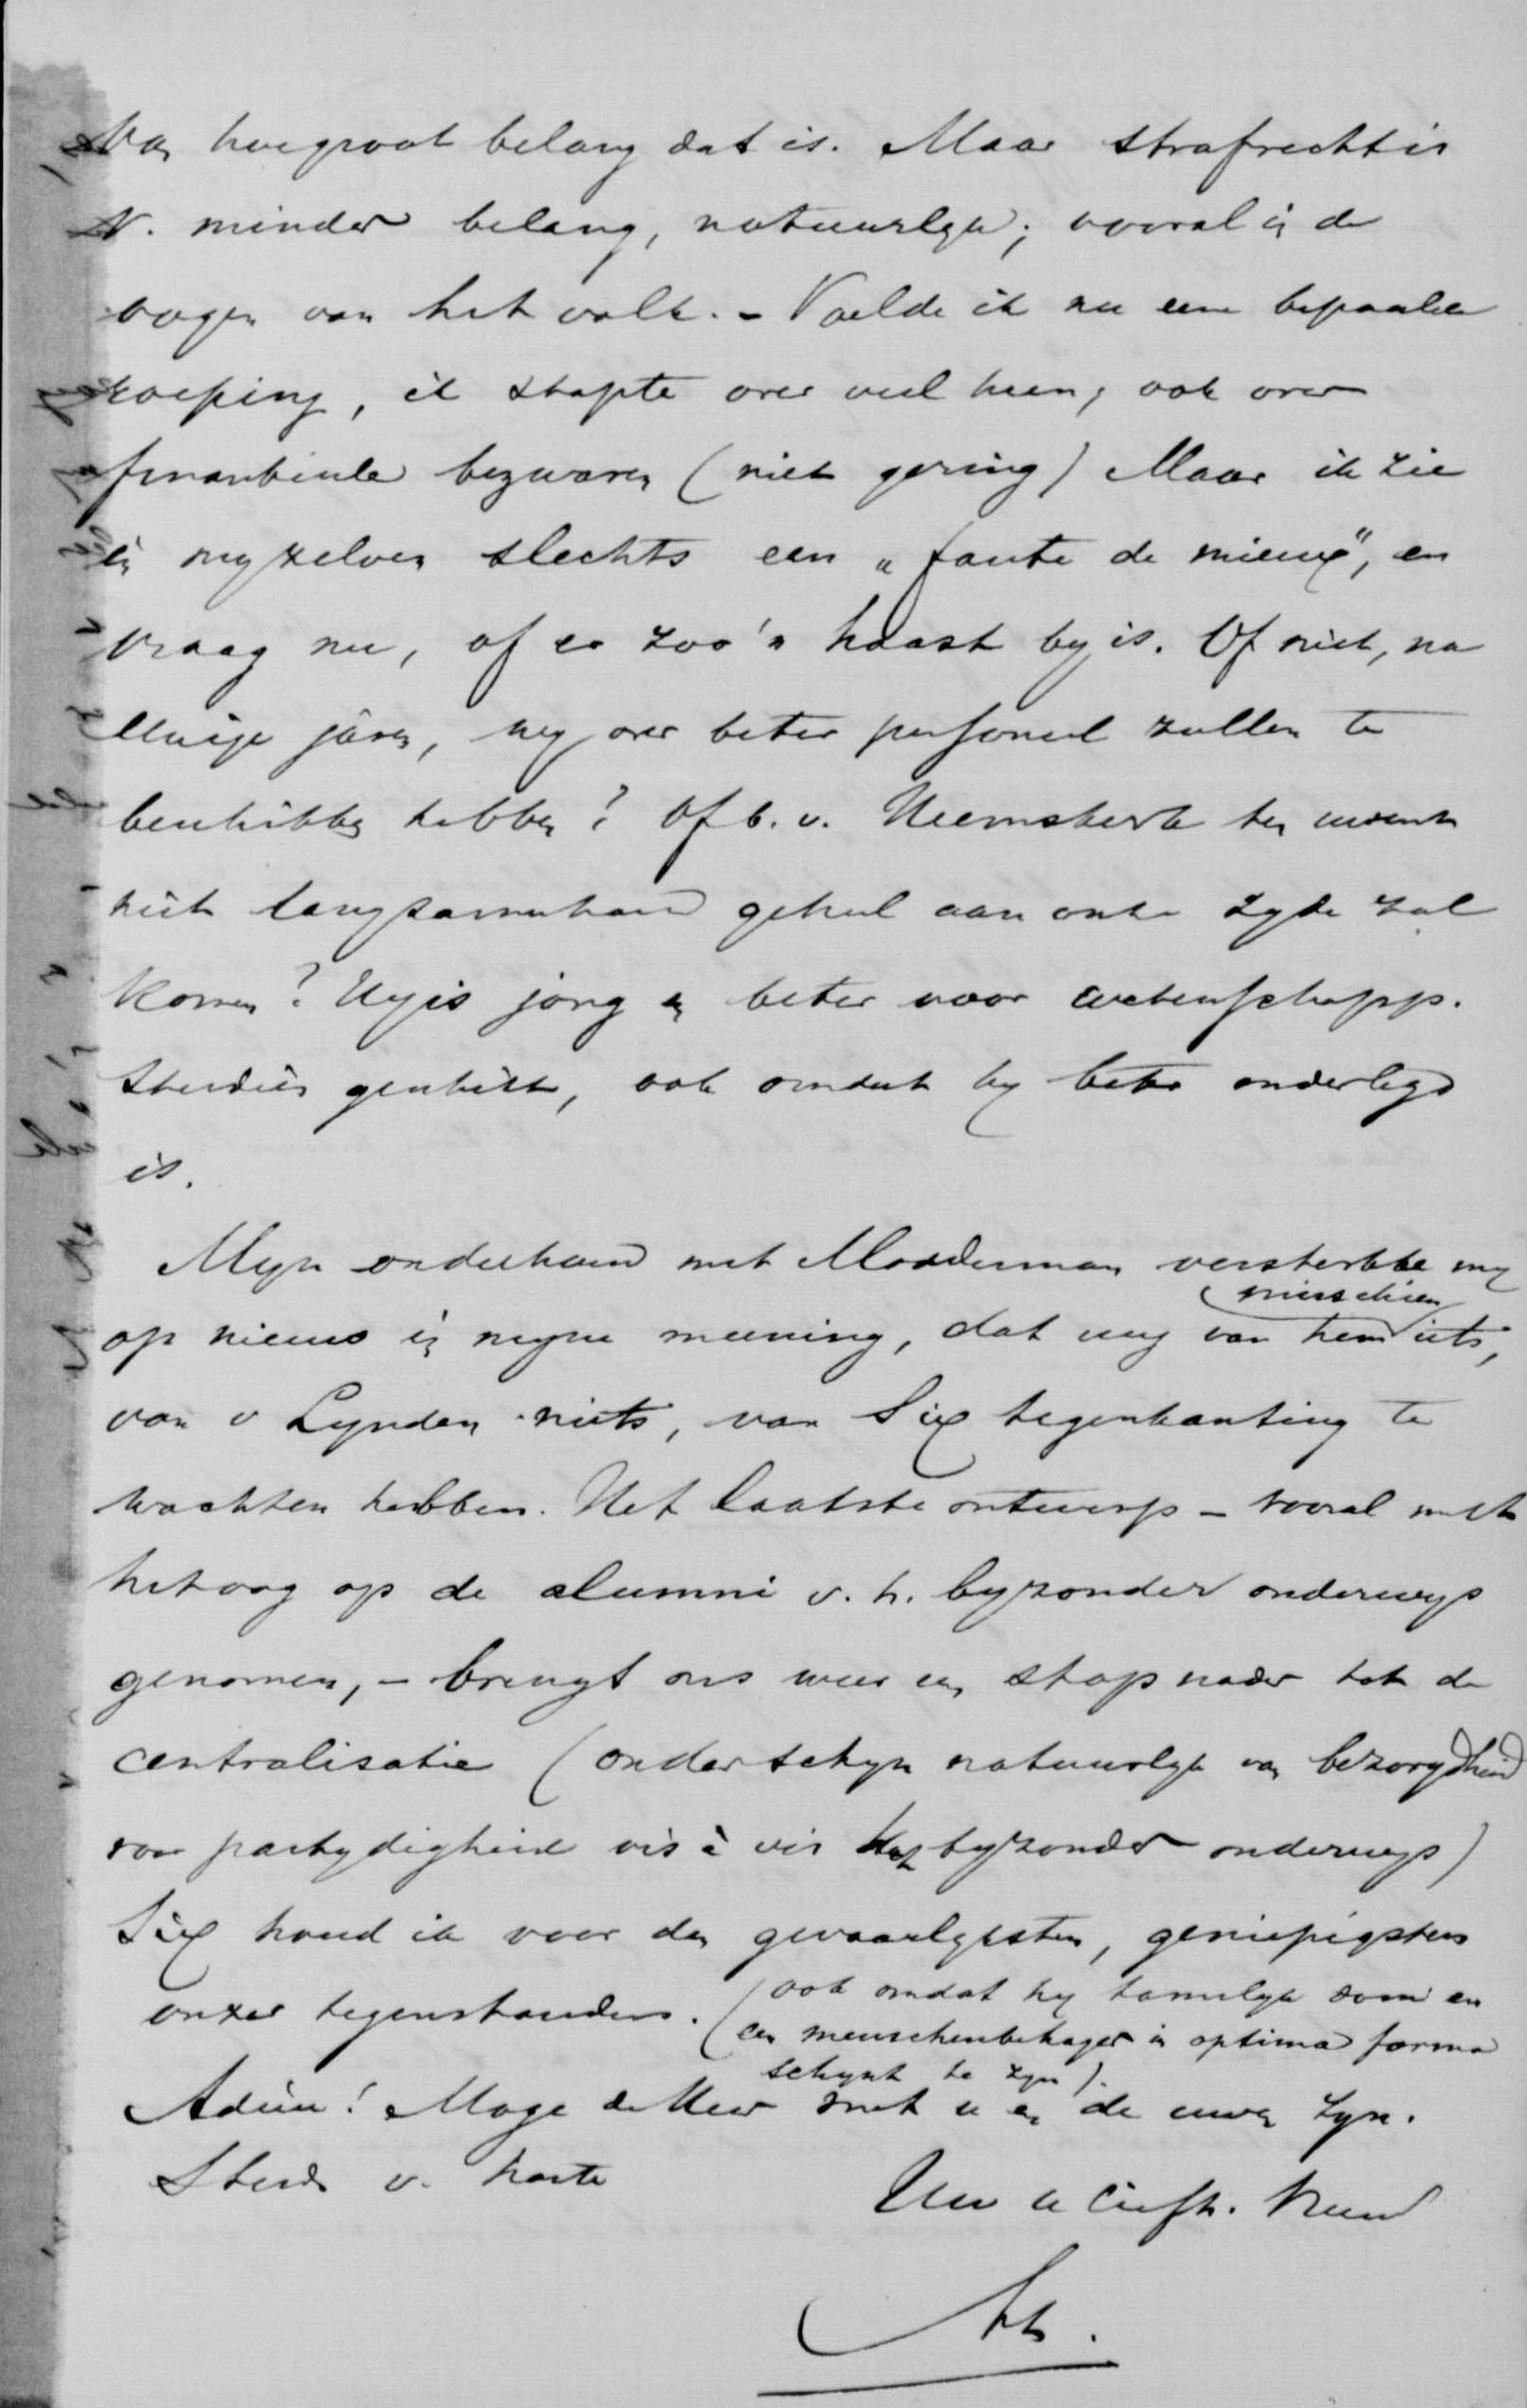 van hoegroot belang dat is. Maar strafrecht is
v. minder belang, natuurlyk; vooral in de
oogen van het volk. – Voelde ik nu eene bepaalde
roeping, ik stapte over veel heen, ook over
financieele bezwaren (niet gering) Maar ik zie
in myzelven slechts een „faute de mieux", en
vraag nu, of er zoo'n haast by is. Of niet, na
eenige jaren, wy over beter personeel zullen te
beschikken hebben? Of b.v. Heemskerk ten meent
niet langzamerhand geheel aan onze zyde zal
komen? Hy is jong en beter voor wetenschapp.
studiën geschikt, ook omdat hy beter onderlegd
is.
Myn onderhoud met Modderman versterkte my
op nieuw in myne meening, dat wy van hem misschien iets,
van v Lynden niets, van Six tegenkanting te
wachten hebben. Het laatste ontwerp – vooral met
het oog op de alumni v. h. byzonder onderwys
genomen, – brengt ons weer een stap nader tot de
centralisatie (onder schyn natuurlyk van bezorgdheid
voor partydigheid vis à vis het byzonder onderwys)
Six houd ik voor den gevaarlyksten, geniepigsten
onzer tegenstanders. (ook omdat hy tamelyk dom en
een menschenbehager in optima forma
schynt te zyn).
Adieu! Moge de Heer met u en de uwen zyn.
Steeds v. harte
Uw u liefh. vriend